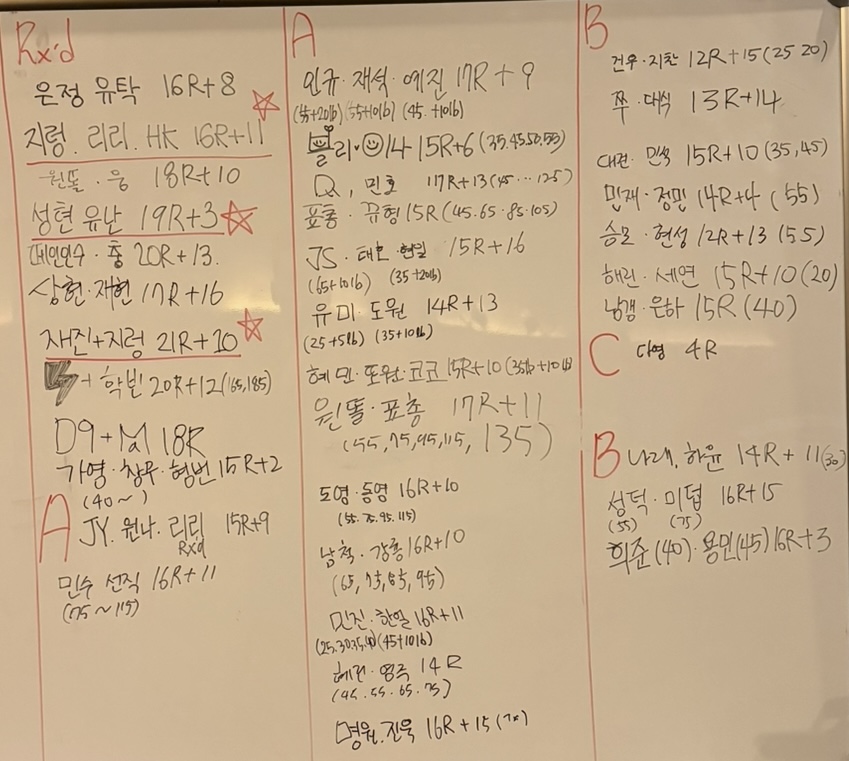 Rx'd
은정 유탁 16R+8
지렁. 리리. HK 16R+11
원똘 · 웅 18R+10
성현 유난 19R+3
대인인수 · 총 20R+13.
상현·재현 17R+16
재진+지렁 21R+10
+ 학빈 20R+12(165,185)
D9+M 18R
가영·창무·형번 15R+2
(40~)
A
JY. 원나. 리리 15R+9
Rxd
민수 선직 16R+11
(75~115)
A
인규·재석·예진 17R+9
(55+20lb) (55+10lb) (45.+10lb)
리·14 15R+6(35.45.50.55)
D, 민호 17R+13(45...125)
표총·뀨형 15R(45.65.85.105)
JS·태호·현일 15R+16
(65+10lb) (35+20lb)
유미·도원 14R+13
(25+5lb) (35+10lb)
혜민·또원·코코 15R+10(35lb+10lb)
원똘·표총 17R+11
(55,75,95,115,135)
도영·동영 16R+10
(55.75.95.115)
남척·강룡 16R+10
(65,75,85,95)
민진·한일 16R+11
(25.30.35.40)(45+10lb)
혜진·영국 14R
(45.55.65.75)
명원.진욱 16R+15
B
건우·지찬 12R+15(25 20)
쭈·대식 13R+14
대건·민석 15R+10(35,45)
민재·정민 14R+4(55)
승모·현성 12R+13(55)
해린·세연 15R+10(20)
남갱·은하 15R(40)
C 다영 4R
B 나래.하윤 14R+11(30)
성덕·미덥 16R+15
(55) (75)
희준(40)·용민(45)16R+3